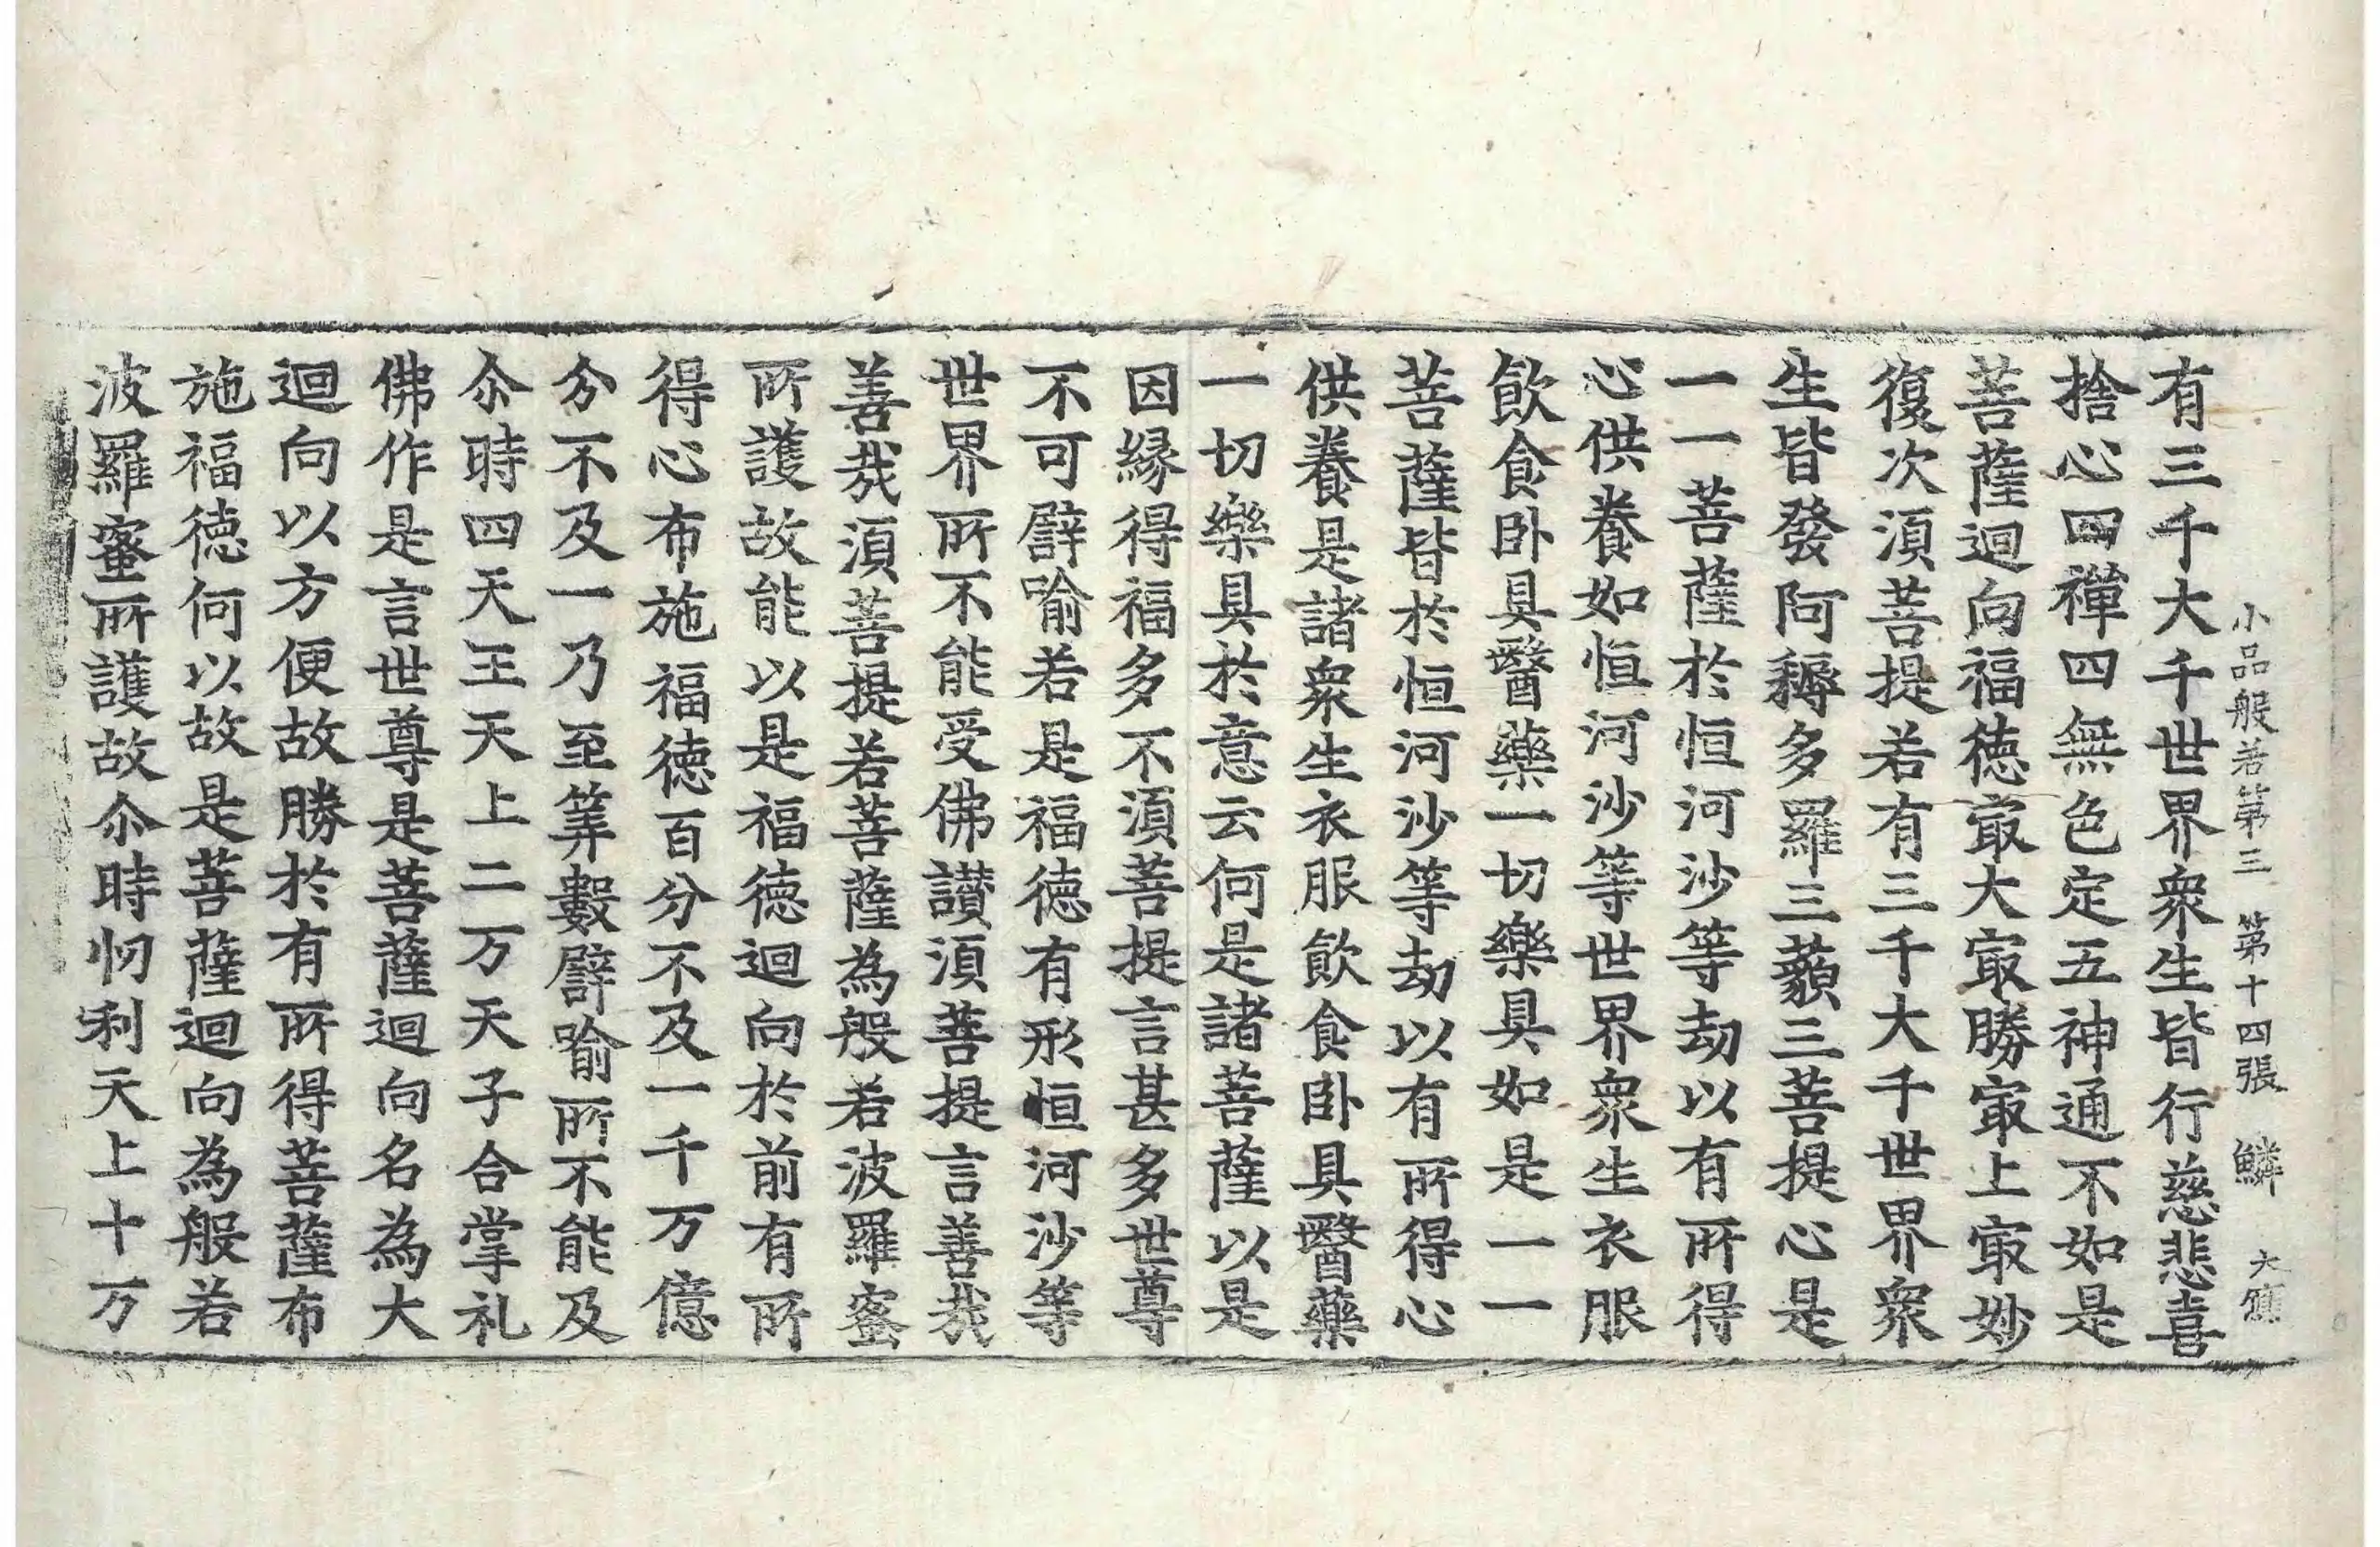 小品般若第三 第十四張 鱗 大
有三千大千世界衆生皆行慈悲喜
捨心四禪四無色定五神通不如是
菩薩迴向福德㝡大㝡勝㝡上㝡妙
復次須菩提若有三千大千世界衆
生皆發阿耨多羅三藐三菩提心是
一一菩薩於恒河沙等劫以有所得
心供養如恒河沙等世界衆生衣服
飲食卧具醫藥一切樂具如是一一
菩薩皆於恒河沙等劫以有所得心
供養是諸衆生衣服飲食卧具醫藥
一切樂具於意云何是諸菩薩以是
因緣得福多不須菩提言甚多世尊
不可譬喻若是福德有形恒河沙等
世界所不能受佛讃須菩提言善㦲
善㦲須菩提若菩薩為般若波羅蜜
所護故能以是福德迴向於前有所
得心布施福德百分不及一千万億
分不及一乃至筭數譬喻所不能及
尒時四天王天上二万天子合掌礼
佛作是言世尊是菩薩迴向名為大
迴向以方便故勝於有所得菩薩布
施福德何以故是菩薩迴向為般若
波羅蜜所護故尒時忉利天上十万